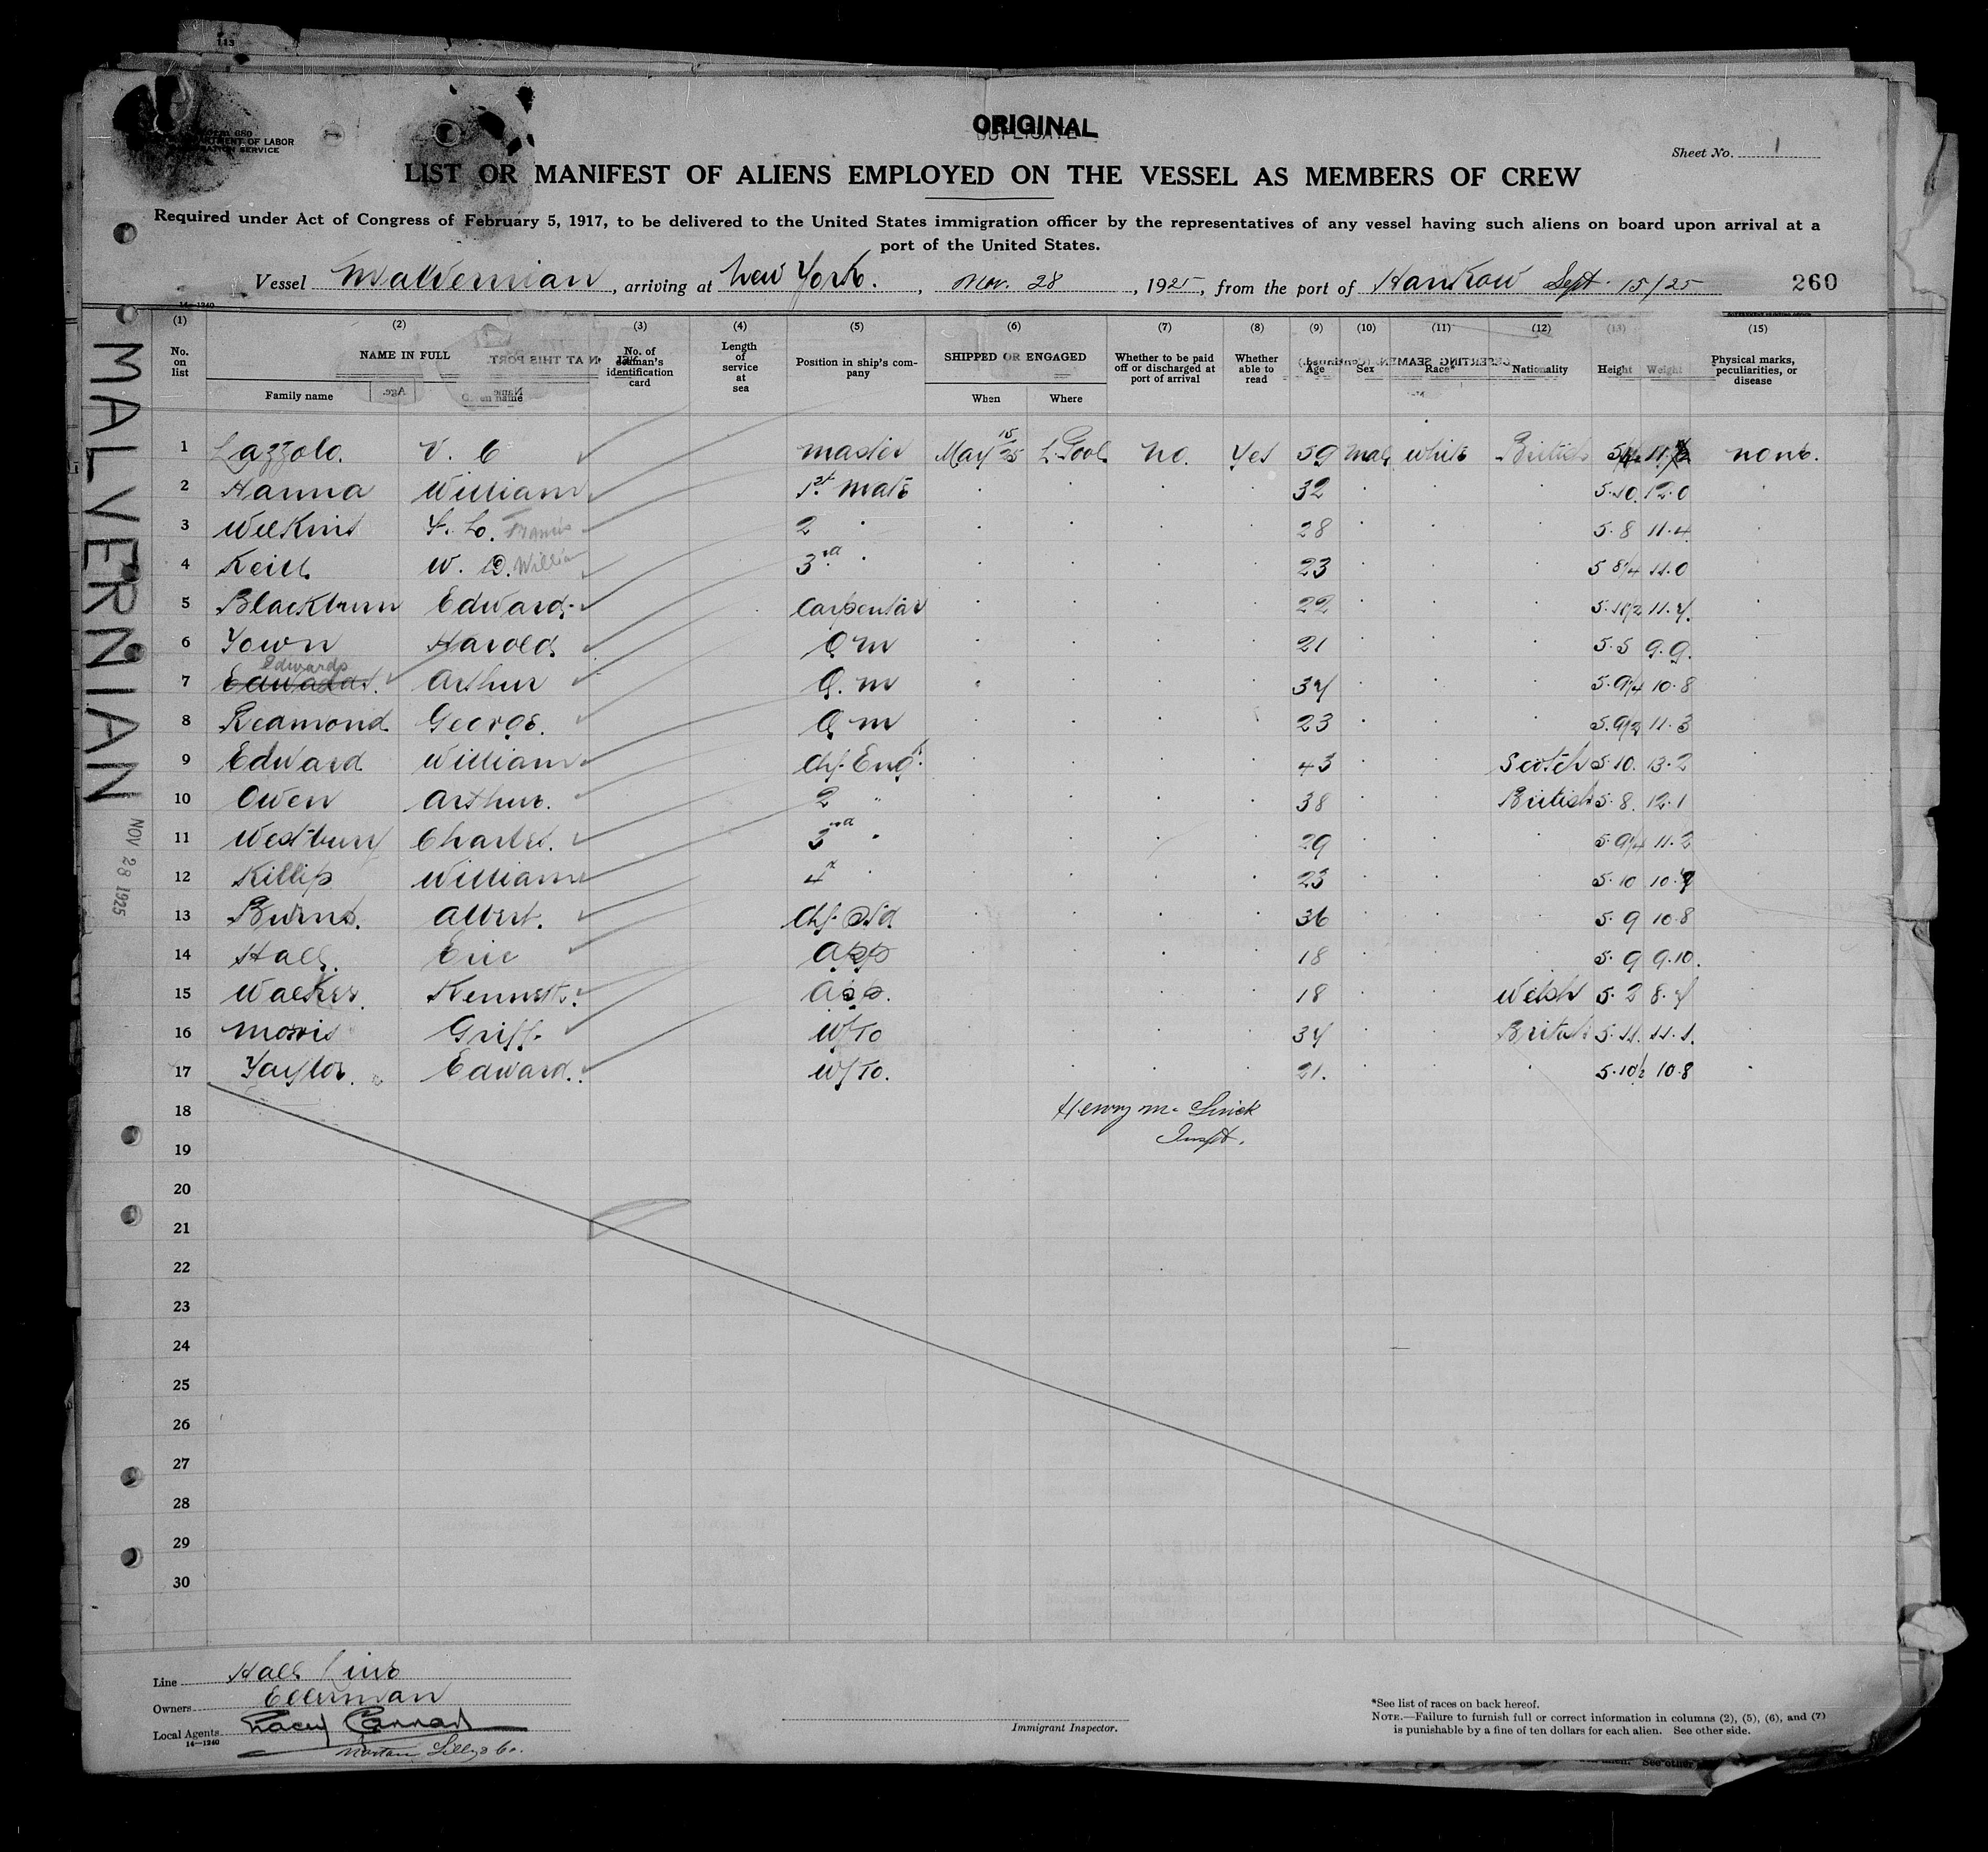 113
ORIGINAL
DEPARTMENT OF LABOR
IMMIGRATION SERVICE
Sheet No. 1
LIST OR MANIFEST OF ALIENS EMPLOYED ON THE VESSEL AS MEMBERS OF CREW
Required under Act of Congress of February 5, 1917, to be delivered to the United States immigration officer by the representatives of any vessel having such aliens on board upon arrival at a
port of the United States.
Vessel Malvernian, arriving at New York., Nov. 28, 1925, from the port of Hankow Sept. 15/25 260
14-1240
(1) (2) (3) (4) (5) (6) (7) (8) (9) (10) (11) (12) (13) (15)
No. on list NAME IN FULL Family name Given name No. of seaman's identification card Length of service at sea Position in ship's company SHIPPED OR ENGAGED When Where Whether to be paid off or discharged at port of arrival Whether able to read Age Sex Race* Nationality Height Weight Physical marks, peculiarities, or disease
MALVERNIAN
NOV 28 1925
1 Lazzolo. V. C master May 15 25 L. Pool. No. Yes 59 male white British none.
2 Hanna William 1st. mate 32 5.10 12.0
3 Wilkins F. L. Francis 2 28 5.8 11.4
4 Keill W. D. William 3rd 23 5 8 1/4 11.0
5 Blackburn Edward carpenter 22
6 Town Harold Q m 21 5.5 9.9.
7 Edwards Edwards Arthur Q. m 37 5.9 1/4 10.8
8 Redmond George. Q m 23 5.9 1/2 11.3
9 Edward William chf. Engr. 43 Scotch 5.10. 13.2
10 Owen Arthur. 2 " 38 British 5.8. 12.1
11 Westbury Charles. 3rd " 29 5.9 1/4 11.2
12 Killip William 4 23 5.10
13 Burns. Albert. chf. Std. 36 5.9 10.8
14 Hall. Eric app 18 5.9 9.10.
15 Walker. Kenneth. app. 18 Welsh 5.2 8.7
16 Morris Griff. W/To 37 British 5.11. 11.1.
17 Taylor. Edward. W/To. 21. 5.10 1/2 10.8
18 Henry M.
19 Inspt.
20
21
22
23
24
25
26
27
28
29
30
Line Hall Line
Owners Ellerman
Local Agents
14-1240
Norton Lilly & Co.
Immigrant Inspector.
*See list of races on back hereof.
NOTE.—Failure to furnish full or correct information in columns (2), (5), (6), and (7)
is punishable by a fine of ten dollars for each alien. See other side.